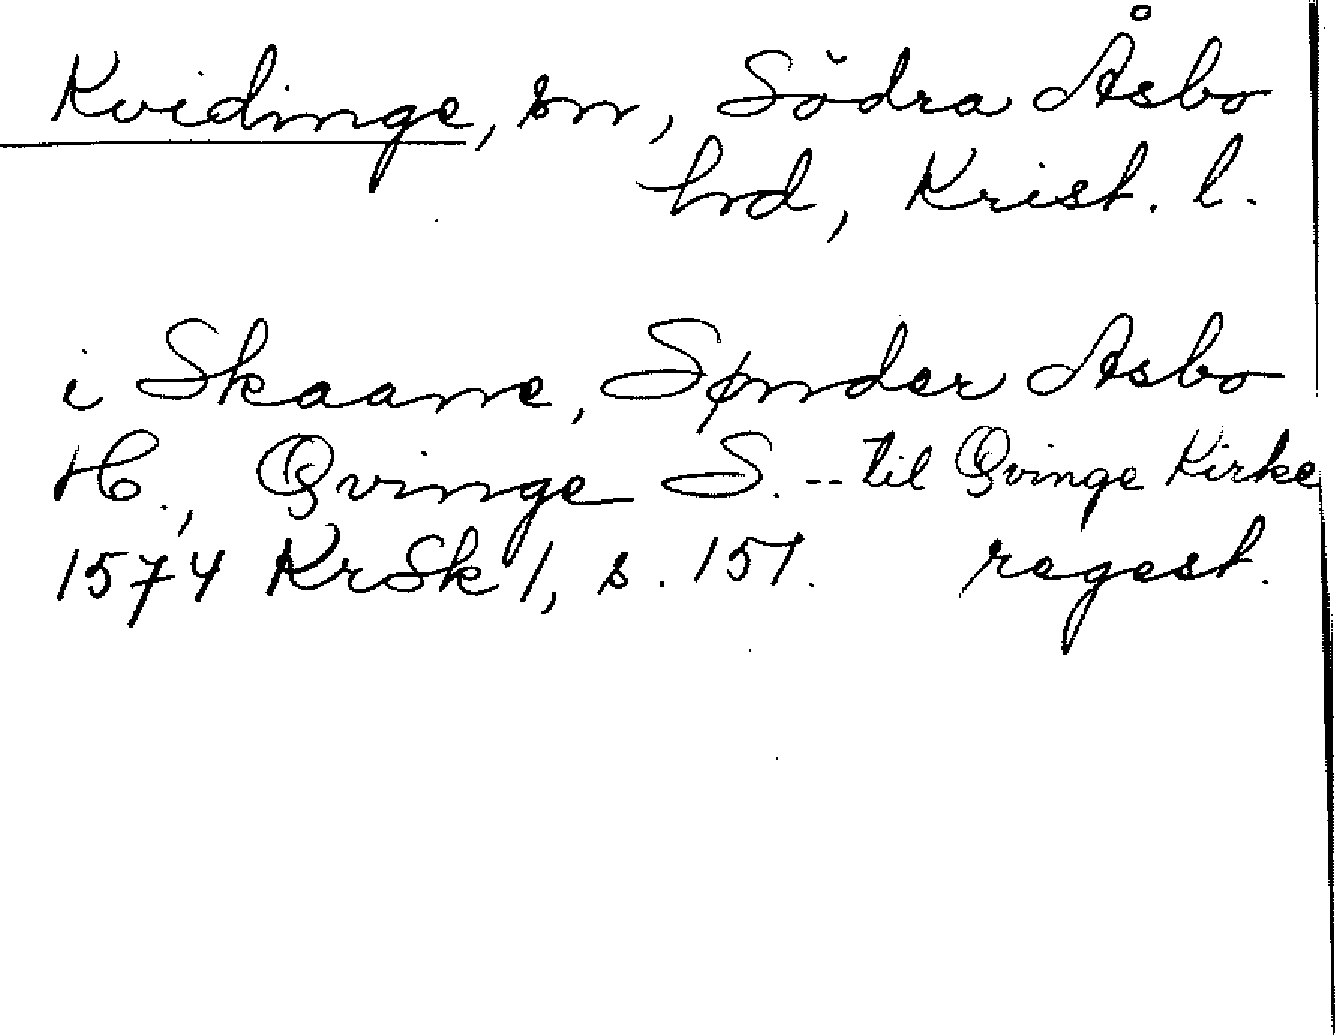 Kvidinge, sn, Södra Åsbo
hrd, Krist. l.
i Skaane, Sønder Asbo
H., Qvinge S. -- til Qvinge Kirke
1574 KrSk 1, s. 151. regest.